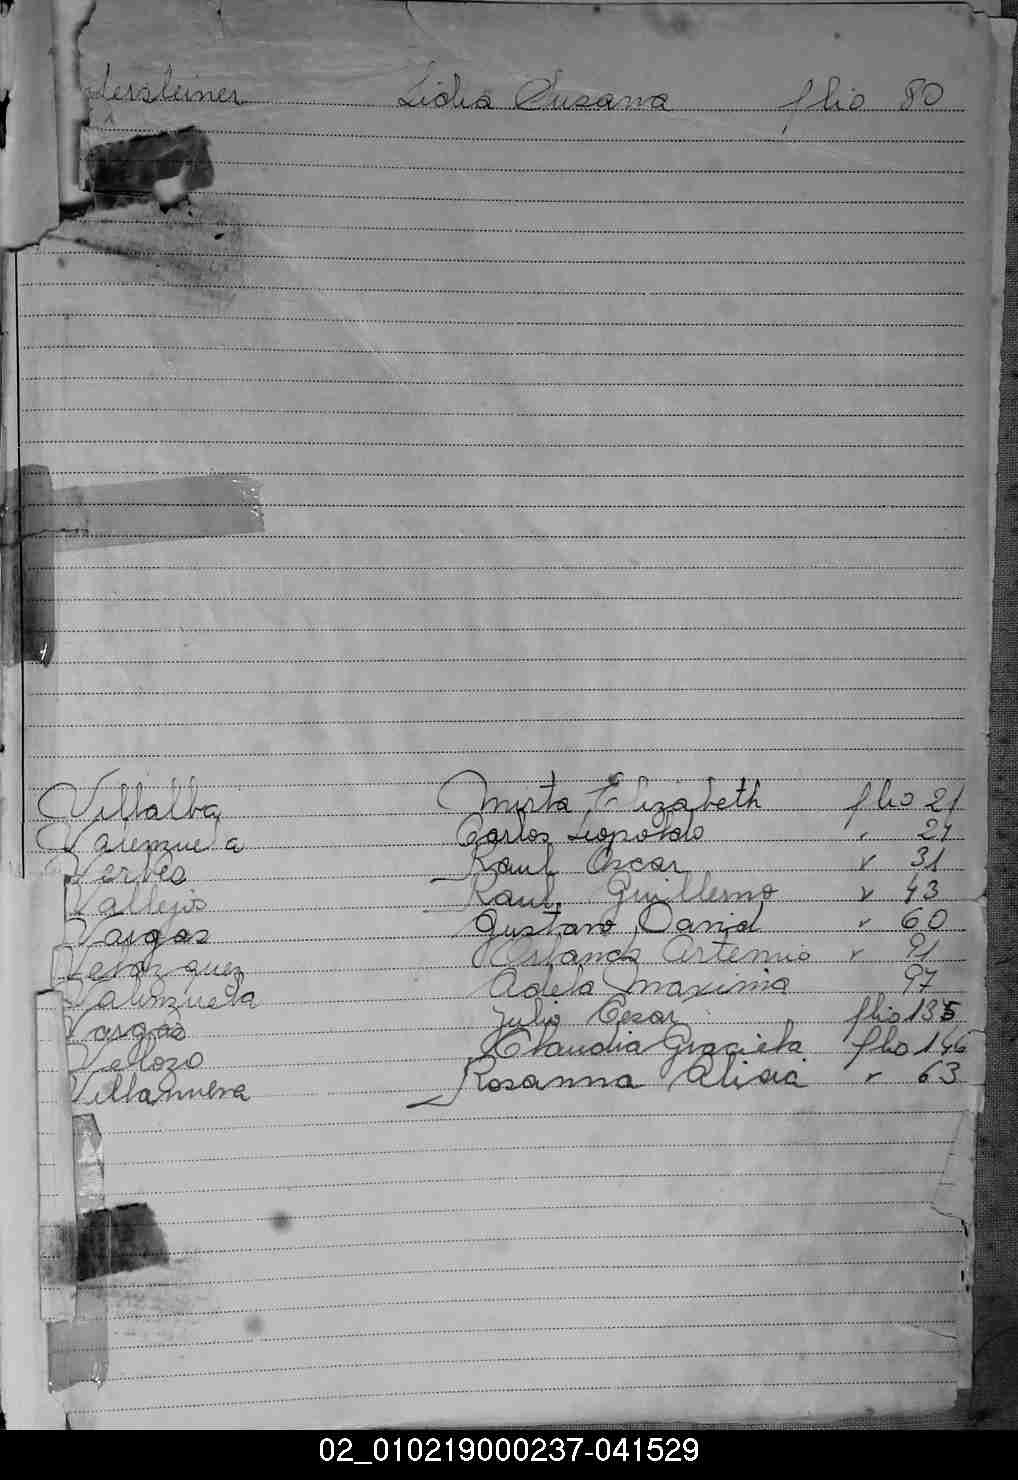 Lidia Susana flio 80
Villalba Mirta Elizabeth flio 21
Valenzuela Carlos Leopoldo " 24
Verbes Raul Oscar " 31
Vallejos Raul Guillermo " 43
Vargas Gustavo David " 60
Velazquez Artemio " 91
Valenzuela Adela Maxima 97
Vargas Julio Cesar flio 135
Vellozo Claudia Graciela flio 146
Villanueva Rosanna Alicia " 63
02_010219000237-041529